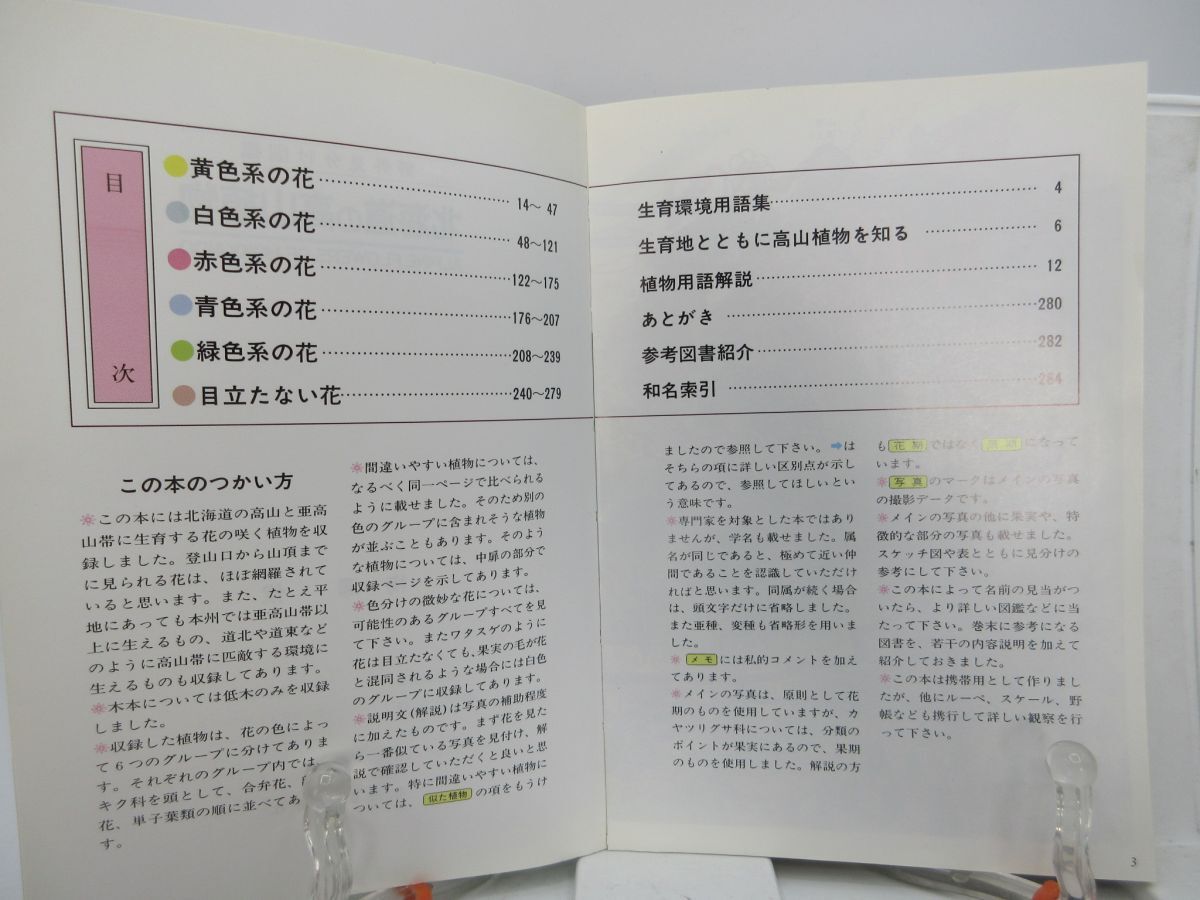 目次
黄色系の花 14〜47
白色系の花 48〜121
赤色系の花 122〜175
青色系の花 176〜207
緑色系の花 208〜239
目立たない花 240〜279
生育環境用語集 4
生育地とともに高山植物を知る 6
植物用語解説 12
あとがき 280
参考図書紹介 282
和名索引 284
この本のつかい方
この本には北海道の高山と亜高
山帯に生育する花の咲く植物を収
録しました。登山口から山頂まで
に見られる花は、ほぼ網羅されて
いると思います。また、たとえ平
地にあっても本州では亜高山帯以
上に生えるもの、道北や道東など
のように高山帯に匹敵する環境に
生えるものも収録してあります。
木本については低木のみを収録
しました。
収録した植物は、花の色によっ
て6つのグループに分けてありま
す。それぞれのグループ内では、
キク科を頭として、合弁花、
花、単子葉類の順に並べてあ
す。
間違いやすい植物については、
なるべく同一ページで比べられる
ように載せました。そのため別の
色のグループに含まれそうな植物
が並ぶこともあります。そのよう
な植物については、中扉の部分で
収録ページを示してあります。
色分けの微妙な花については、
可能性のあるグループすべてを見
て下さい。またワタスゲのように
花は目立たなくても、果実の毛が花
と混同されるような場合には白色
のグループに収録してあります。
説明文(解説)は写真の補助程度
に加えたものです。まず花を見た
ら一番似ている写真を見付け、解
説で確認していただくと良いと思
います。特に間違いやすい植物に
ついては、似た植物の項をもうけ
ましたので参照して下さい。➡は
そちらの項に詳しい区別点が示し
てあるので、参照してほしいとい
う意味です。
専門家を対象とした本ではあり
ませんが、学名も載せました。属
名が同じであると、極めて近い仲
間であることを認識していただけ
ればと思います。同属が続く場合
は、頭文字だけに省略しました。
また亜種、変種も省略形を用いま
した。
メモには私的コメントを加え
てあります。
メインの写真は、原則として花
期のものを使用していますが、カ
ヤツリグサ科については、分類の
ポイントが果実にあるので、果期
のものを使用しました。解説の方
も花期ではなく果期になって
います。
写真のマークはメインの写真
の撮影データです。
メインの写真の他に果実や、特
徴的な部分の写真も載せました。
スケッチ図や表とともに見分けの
参考にして下さい。
この本によって名前の見当がつ
いたら、より詳しい図鑑などに当
たって下さい。巻末に参考になる
図書を、若干の内容説明を加えて
紹介しておきました。
この本は携帯用として作りまし
たが、他にルーペ、スケール、野
帳なども携行して詳しい観察を行
って下さい。
3